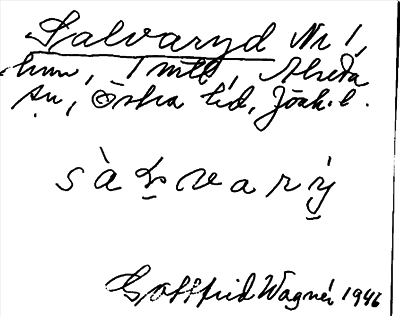 Salvaryd Nr 1,
hmn, 1 mtl, Alseda
sn, Östra hd, Jönk. l.
sàḷvarý̤
Gottfrid Wagnér 1946